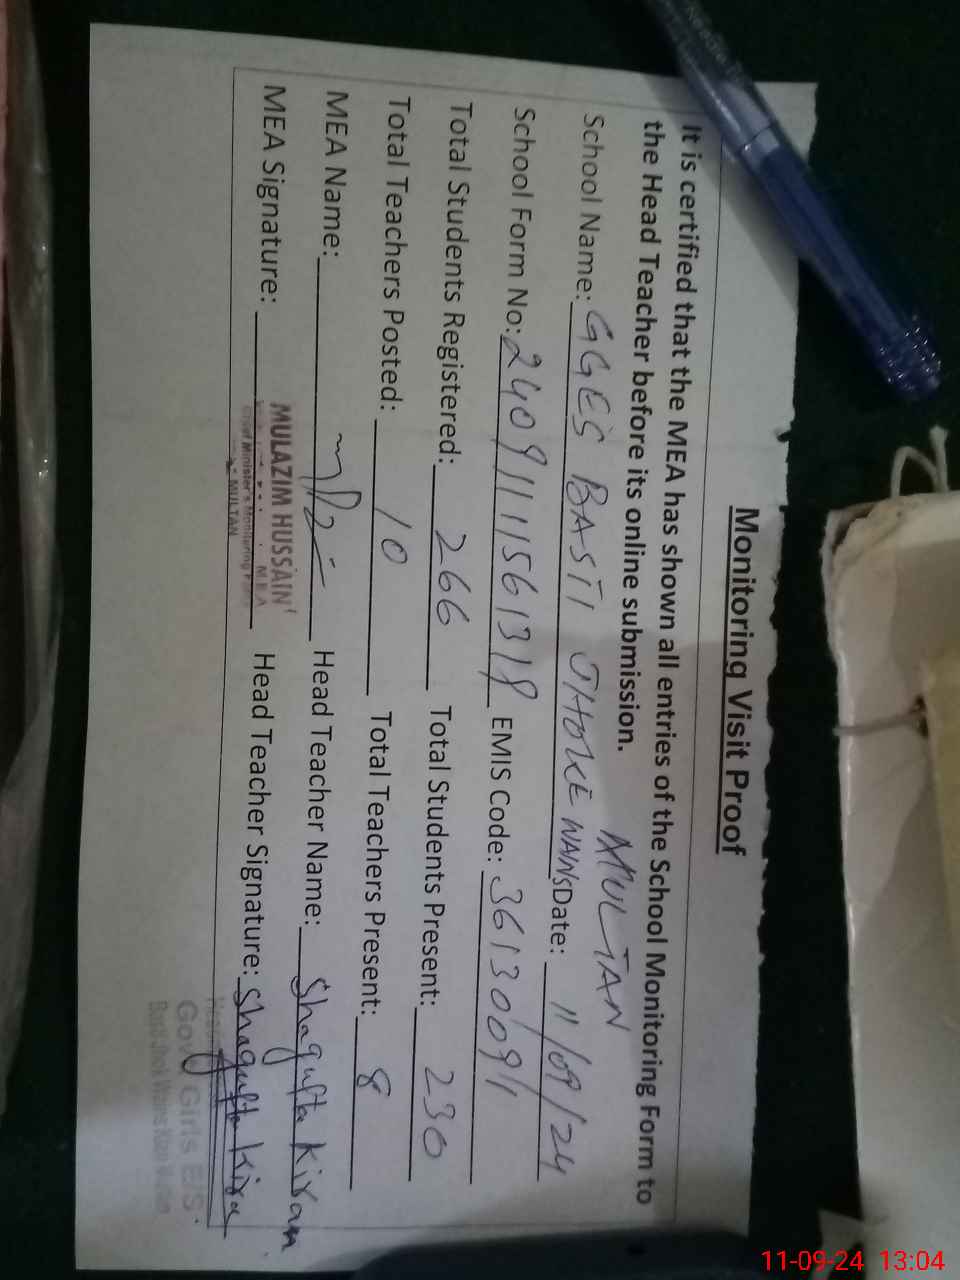 Monitoring Visit Proof
It is certified that the MEA has shown all entries of the School Monitoring Form to
the Head Teacher before its online submission.
MULTAN
School Name: GGES BASTI JHOKE WAINS Date: 11/09/24
School Form No: 2409111561318 EMIS Code: 36130091
Total Students Registered: 266 Total Students Present: 230
Total Teachers Posted: 10 Total Teachers Present: 8
MEA Name: Head Teacher Name: Shagufta Kiran
MEA Signature: Head Teacher Signature: Shagufta Kiran
MULAZIM HUSSAIN
M.E.A
Chief Minister's Monitoring
MULTAN
Govt Girls E/S
11-09-24 13:04